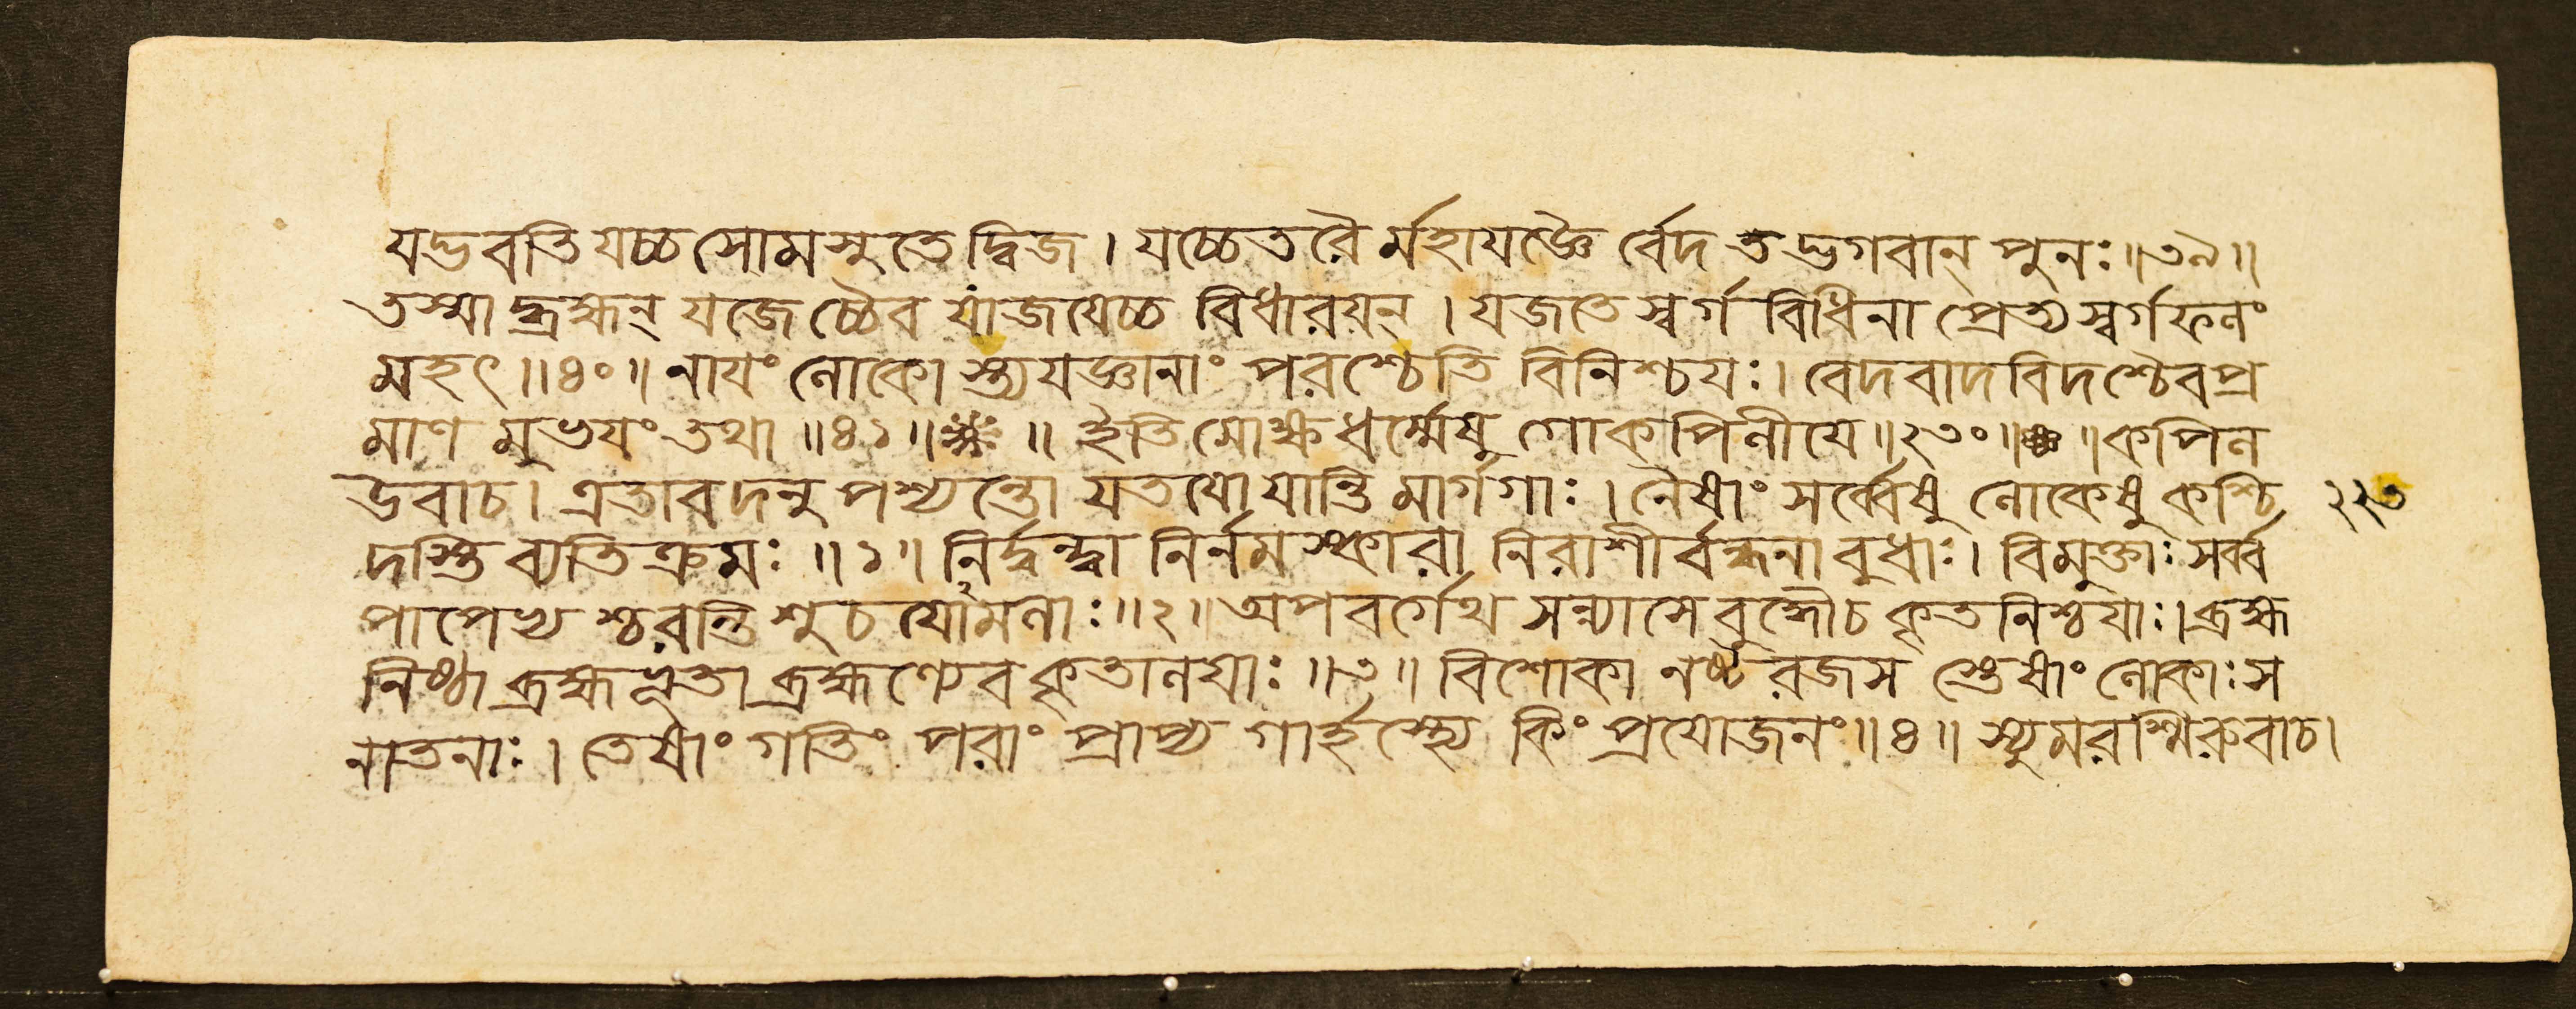 যদ্ভবতি যচ্চ সোমসুতে দ্বিজ । যচ্চেতরৈর্মহাযজ্ঞৈর্বেদ তদ্ভগবান্ পুনঃ ॥৩৯॥
তস্মাদ্ব্রহ্মন্ যজেচ্চৈব যাজযেচ্চ বিধারয়ন্ । যজতে স্বর্গবিধিনা প্রেত্য স্বর্গফলং
মহৎ ॥৪০॥ নাযং লোকোস্ত্যযজ্ঞানাং পরশ্চেতি বিনিশ্চযঃ । বেদবাদবিদশ্চৈব প্র
মাণমুভযং তথা ॥৪১॥ ॥ ইতি মোক্ষধর্ম্মেষু গোকপিলীযে ॥২৩০॥ ॥ কপিল
উবাচ । এতাবদনুপশ্যন্তো যতযো যান্তি মার্গগাঃ । নৈষাং সর্ব্বেষু লোকেষু কশ্চি
দস্তি ব্যতিক্রমঃ ॥১॥ নির্দ্বন্দ্বা নির্নমস্কারা নিরাশীর্বন্ধনা বুধাঃ । বিমুক্তাঃ সর্ব্ব
পাপেভ্যশ্চরন্তি শুচযোমলাঃ ॥২॥ অপবর্গেথ সন্ন্যাসে বুদ্ধৌ চ কৃতনিশ্চযাঃ । ব্রহ্ম
নিষ্ঠা ব্রহ্মভূতা ব্রহ্মণ্যেব কৃতালযাঃ ॥৩॥ বিশোকা নষ্টরজসস্তেষাং লোকাঃ স
নাতনাঃ । তেষাং গতিং পরাং প্রাপ্য গার্হস্থ্যে কিং প্রযোজনং ॥৪॥ স্যুমরশ্মিরুবাচ ।
২২৩